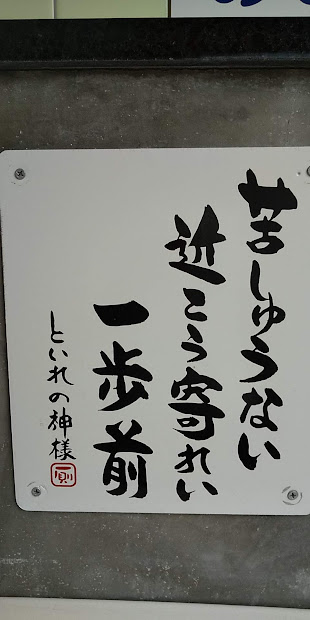 苦しゅうない
近こう寄れい
一歩前
といれの神様